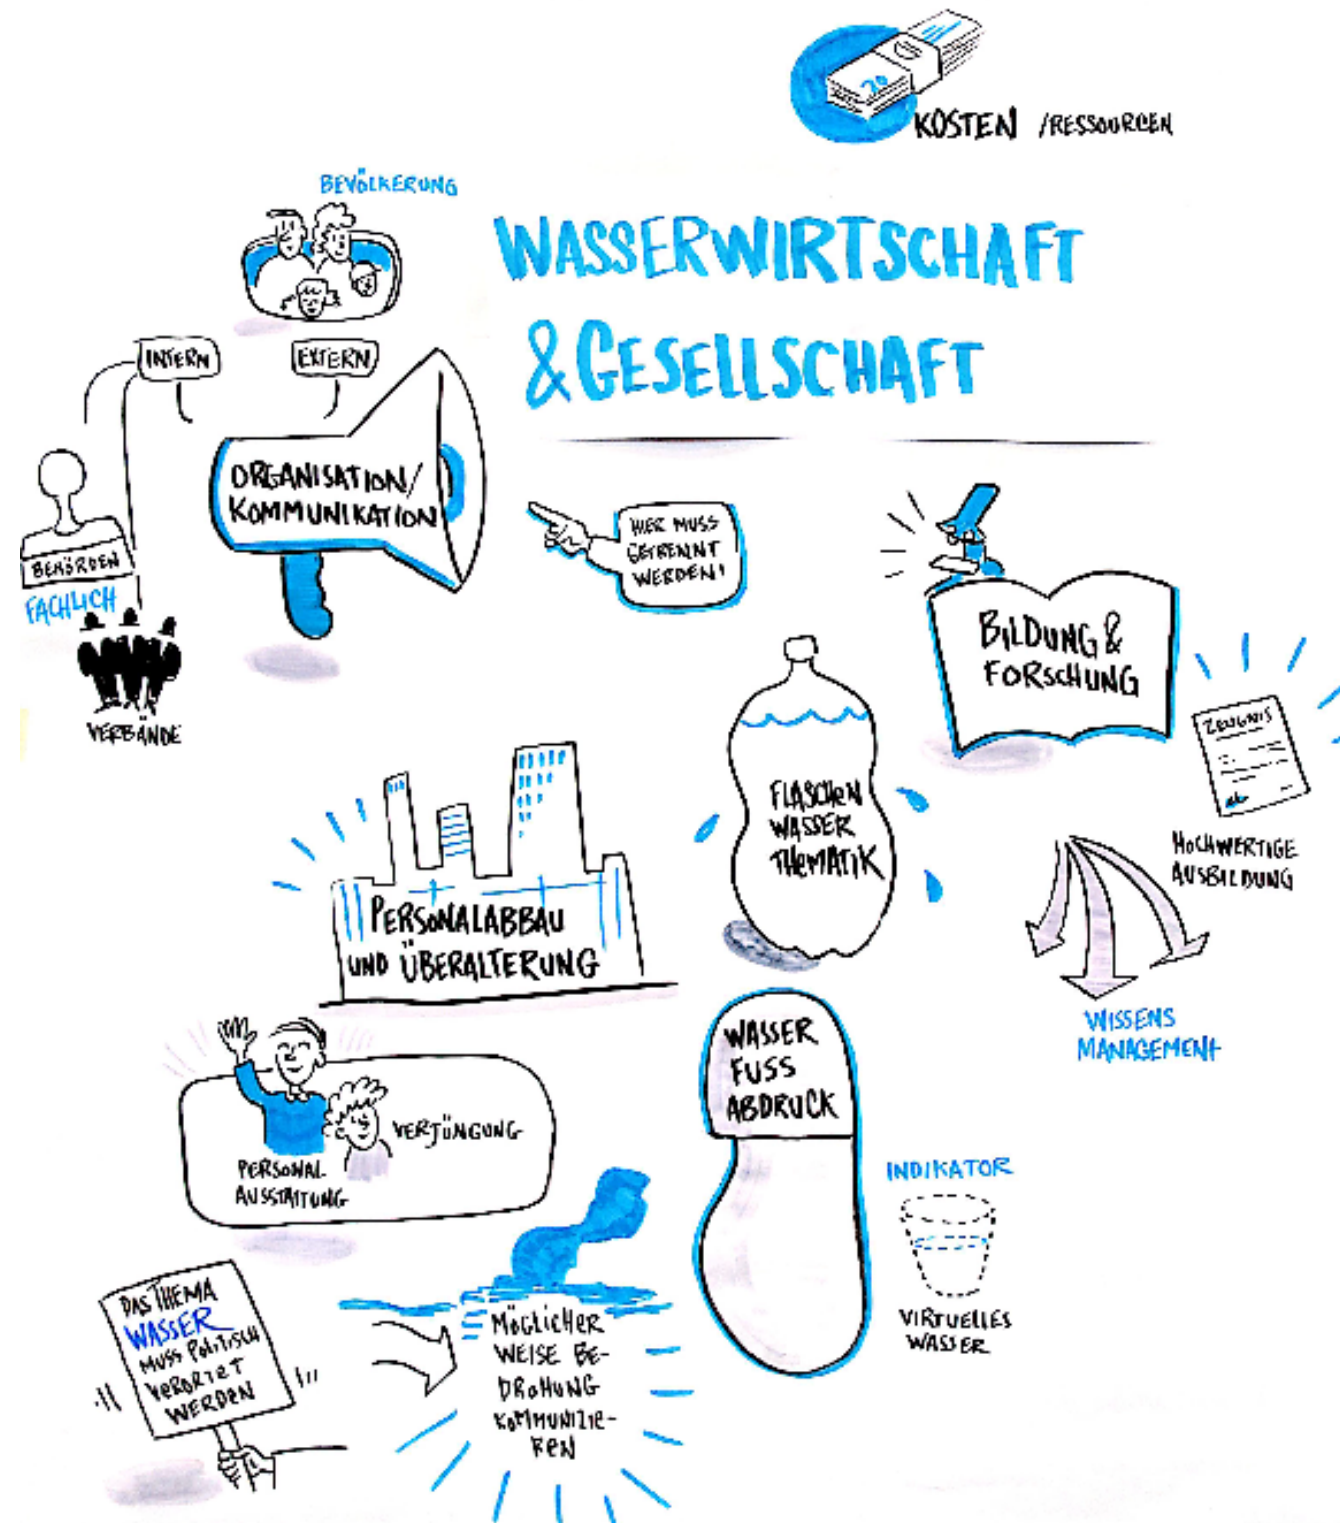 20
KOSTEN /RESSOURCEN
BEVÖLKERUNG
WASSERWIRTSCHAFT
& GESELLSCHAFT
INTERN
EXTERN
ORGANISATION/
KOMMUNIKATION
BEHÖRDEN
FACHLICH
VERBÄNDE
HIER MUSS
GETRENNT
WERDEN!
BILDUNG &
FORSCHUNG
ZEUGNIS
HOCHWERTIGE
AUSBILDUNG
WISSENS
MANAGEMENT
FLASCHEN
WASSER
THEMATIK
PERSONALABBAU
UND ÜBERALTERUNG
VERJÜNGUNG
PERSONAL-
AUSSTATTUNG
WASSER
FUSS
ABDRUCK
INDIKATOR
VIRTUELLES
WASSER
DAS THEMA
WASSER
MUSS POLITISCH
VERORTET
WERDEN
MÖGLICHER
WEISE BE-
DROHUNG
KOMMUNIZIE-
REN